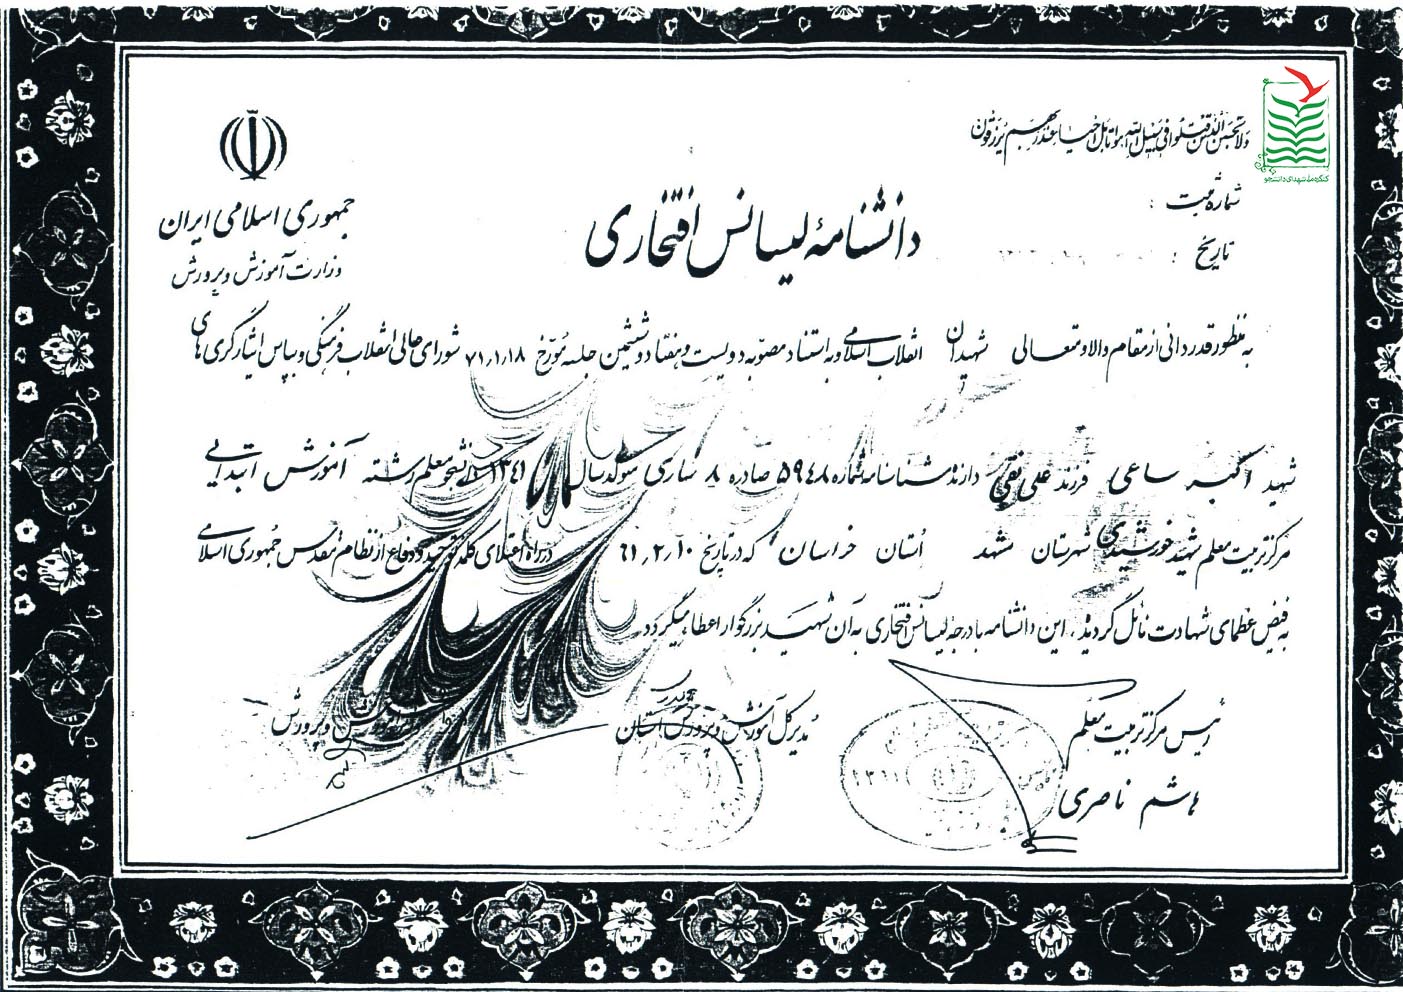 ولا تحسبن الذین قتلوا فی سبیل الله امواتا بل احیاء عند ربهم یرزقون
کنگره ملی شهدای دانشجو
جمهوری اسلامی ایران
وزارت آموزش و پرورش
شماره ثبت :
تاریخ :
دانشنامهٔ لیسانس افتخاری
به منظور قدردانی از مقام والا و متعالی شهیدان انقلاب اسلامی و به استناد مصوبه دویست و هفتاد و ششمین جلسه مورخ ۷۱,۱,۱۸ شورای عالی انقلاب فرهنگی و بپاس ایثارگری های
شهید اکبر ساعی فرزند علی نقی دارنده شناسنامه شماره ۵۹۴۸ صادره ۸ ساری متولد سال ۱۳۴۱ دانشجو معلم رشته آموزش ابتدایی
مرکز تربیت معلم شهید خورشیدی شهرستان مشهد استان خراسان که در تاریخ ۶۱,۲,۱۰ در راه اعتلای کلمه توحید و دفاع از نظام مقدس جمهوری اسلامی
به فیض عظمای شهادت نائل گردید, این دانشنامه با درجه لیسانس افتخاری به آن شهید بزرگوار اعطاء میگردد
رئیس مرکز تربیت معلم
هاشم ناصری
مدیر کل آموزش و پرورش استان
آموزش و پرورش